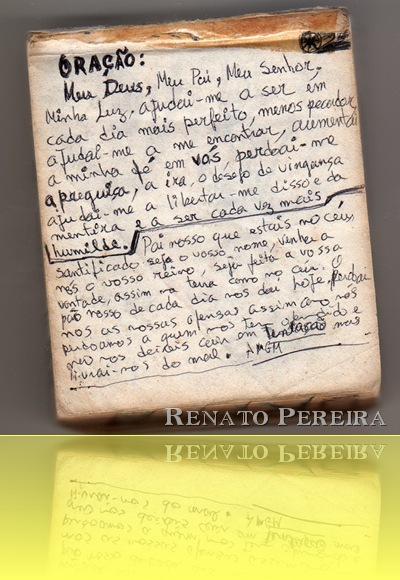 ORAÇÃO:
Meu Deus, Meu Pai, Meu Senhor,
Minha Luz, ajudai-me a ser em
cada dia mais perfeito, menos pecador,
ajudai-me a me encontrar, aumentai
a minha fé em vós, perdoai-me
a preguiça, a ira, o desejo de vingança
ajudai-me a libertar-me disso e da
mentira e a ser cada vez mais
humilde. Pai nosso que estais no céu,
santificado seja o vosso nome, venha a
nós o vosso reino, seja feita a vossa
vontade, assim na terra como no céu. O
pão nosso de cada dia nos dai hoje, perdoai
nos as nossas ofensas assim como nós
perdoamos a quem nos tem ofendido e
não nos deixeis cair em Tentação mas
livrai-nos do mal.
RENATO PEREIRA